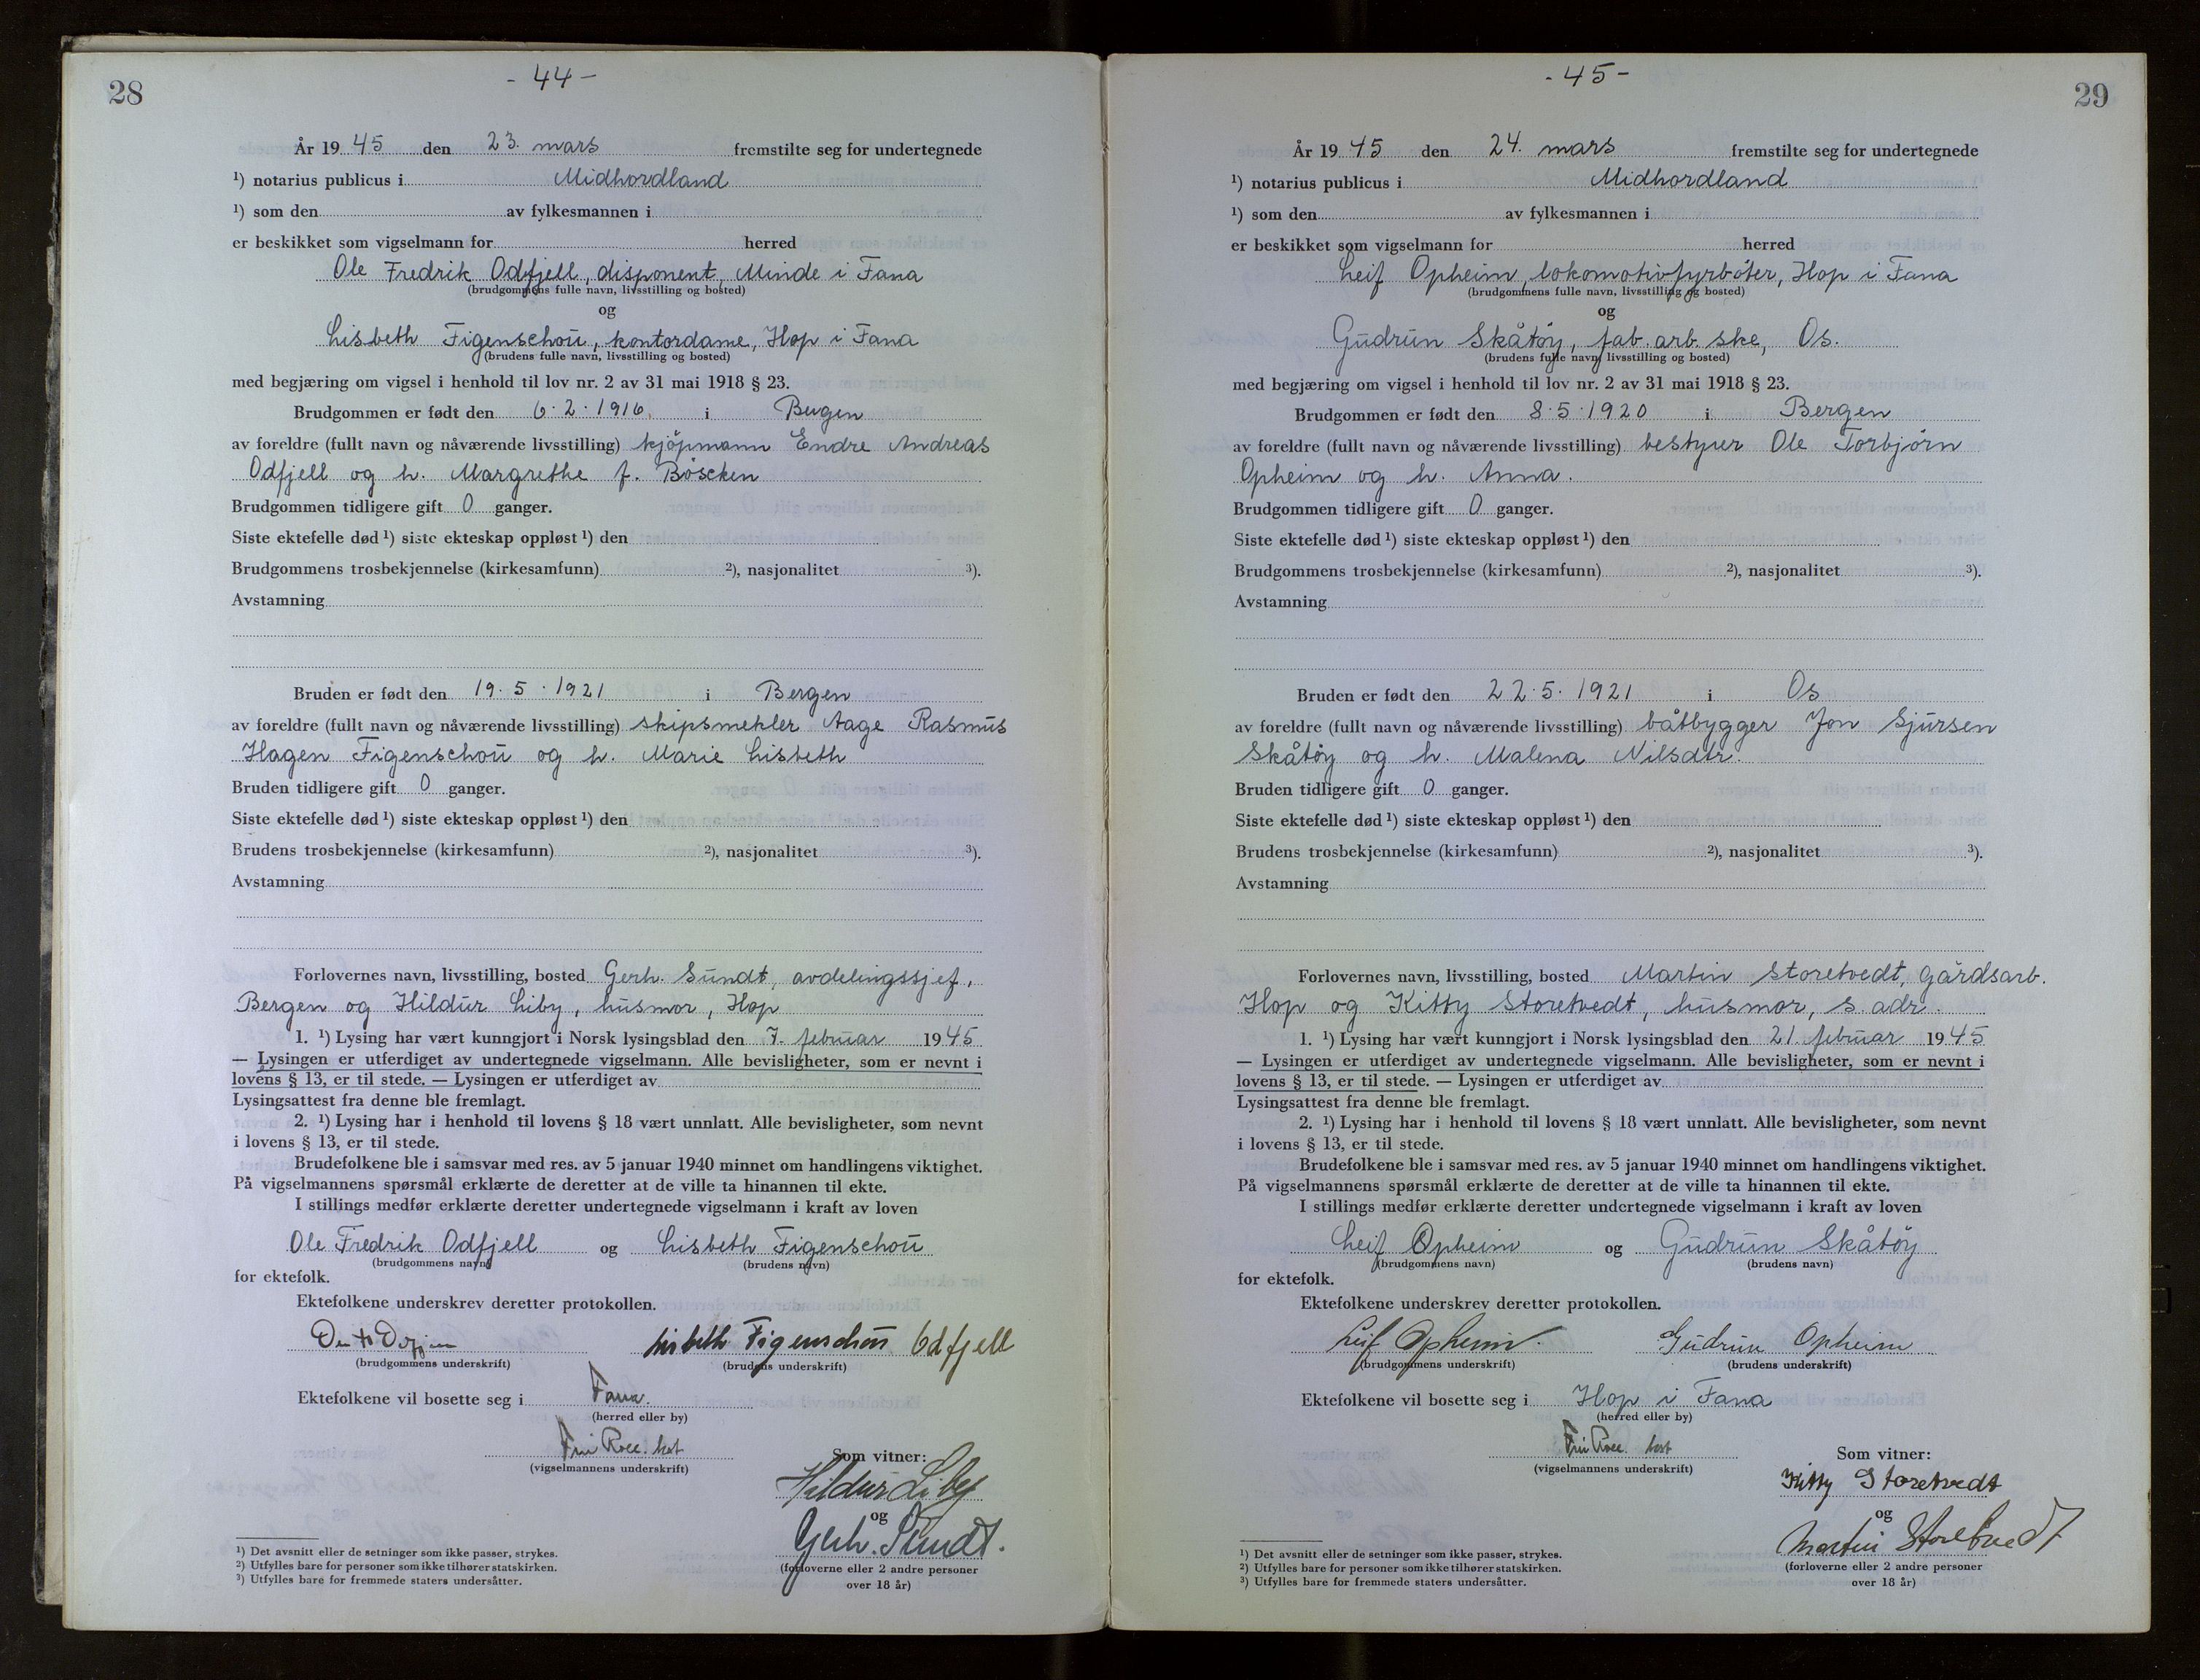 28
- 44 -
År 19 45 den 23. mars fremstilte seg for undertegnede
¹) notarius publicus i Midhordland
¹) som den av fylkesmannen i
er beskikket som vigselmann for herred
Ole Fredrik Odfjell, disponent, Minde i Fana
(brudgommens fulle navn, livsstilling og bosted)
og
Lisbeth Figenschou, kontordame, Hop i Fana
(brudens fulle navn, livsstilling og bosted)
med begjæring om vigsel i henhold til lov nr. 2 av 31 mai 1918 § 23.
Brudgommen er født den 6.2.1916. i Bergen
av foreldre (fullt navn og nåværende livsstilling) kjöpmann Endre Andreas
Odfjell og h. Margrethe f. Böscken
Brudgommen tidligere gift 0 ganger.
Siste ektefelle død ¹) siste ekteskap oppløst ¹) den
Brudgommens trosbekjennelse (kirkesamfunn) ²), nasjonalitet ³).
Avstamning
Bruden er født den 19.5.1921 i Bergen
av foreldre (fullt navn og nåværende livsstilling) skipsmekler Aage Rasmus
Hagen Figenschou og h. Marie Lisbeth
Bruden tidligere gift 0 ganger.
Siste ektefelle død ¹) siste ekteskap oppløst ¹) den
Brudens trosbekjennelse (kirkesamfunn) ²), nasjonalitet ³).
Avstamning
Forlovernes navn, livsstilling, bosted Gerh. Sundt, avdelingssjef,
Bergen og Hildur Liby, husmor, Hop
1. ¹) Lysing har vært kunngjort i Norsk lysingsblad den 7. februar 19 45
— Lysingen er utferdiget av undertegnede vigselmann. Alle bevisligheter, som er nevnt i
lovens § 13, er til stede. — Lysingen er utferdiget av
Lysingsattest fra denne ble fremlagt.
2. ¹) Lysing har i henhold til lovens § 18 vært unnlatt. Alle bevisligheter, som nevnt
i lovens § 13, er til stede.
Brudefolkene ble i samsvar med res. av 5 januar 1940 minnet om handlingens viktighet.
På vigselmannens spørsmål erklærte de deretter at de ville ta hinannen til ekte.
I stillings medfør erklærte deretter undertegnede vigselmann i kraft av loven
Ole Fredrik Odfjell og Lisbeth Figenschou
(brudgommens navn) (brudens navn)
for ektefolk.
Ektefolkene underskrev deretter protokollen.
Lisbeth Figenschou Odfjell
(brudgommens underskrift) (brudens underskrift)
Ektefolkene vil bosette seg i Fana.
(herred eller by)
(vigselmannens underskrift)
Som vitner:
Hildur Liby
og
Gerh. Sundt.
(forloverne eller 2 andre personer
over 18 år)
¹) Det avsnitt eller de setninger som ikke passer, strykes.
²) Utfylles bare for personer som ikke tilhører statskirken.
³) Utfylles bare for fremmede staters undersåtter.
29
- 45 -
År 19 45 den 24. mars fremstilte seg for undertegnede
¹) notarius publicus i Midhordland
¹) som den av fylkesmannen i
er beskikket som vigselmann for herred
Leif Opheim, lokomotivfyrböter, Hop i Fana
(brudgommens fulle navn, livsstilling og bosted)
og
Gudrun Skåtöy, fab. arb. ske, Os.
(brudens fulle navn, livsstilling og bosted)
med begjæring om vigsel i henhold til lov nr. 2 av 31 mai 1918 § 23.
Brudgommen er født den 8.5.1920 i Bergen
av foreldre (fullt navn og nåværende livsstilling) bestyrer Ole Torbjörn
Opheim og h. Anna.
Brudgommen tidligere gift 0 ganger.
Siste ektefelle død ¹) siste ekteskap oppløst ¹) den
Brudgommens trosbekjennelse (kirkesamfunn) ²), nasjonalitet ³).
Avstamning
Bruden er født den 22.5.1921 i Os
av foreldre (fullt navn og nåværende livsstilling) båtbygger Jon Sjursen
Skåtöy og h. Malena Nilsdtr.
Bruden tidligere gift 0 ganger.
Siste ektefelle død ¹) siste ekteskap oppløst ¹) den
Brudens trosbekjennelse (kirkesamfunn) ²), nasjonalitet ³).
Avstamning
Forlovernes navn, livsstilling, bosted Martin Storetvedt, gårdsarb.
Hop og Kitty Storetvedt, husmor, s. adr.
1. ¹) Lysing har vært kunngjort i Norsk lysingsblad den 21. februar 19 45
— Lysingen er utferdiget av undertegnede vigselmann. Alle bevisligheter, som er nevnt i
lovens § 13, er til stede. — Lysingen er utferdiget av
Lysingsattest fra denne ble fremlagt.
2. ¹) Lysing har i henhold til lovens § 18 vært unnlatt. Alle bevisligheter, som nevnt
i lovens § 13, er til stede.
Brudefolkene ble i samsvar med res. av 5 januar 1940 minnet om handlingens viktighet.
På vigselmannens spørsmål erklærte de deretter at de ville ta hinannen til ekte.
I stillings medfør erklærte deretter undertegnede vigselmann i kraft av loven
Leif Opheim og Gudrun Skåtöy
(brudgommens navn) (brudens navn)
for ektefolk.
Ektefolkene underskrev deretter protokollen.
Leif Opheim. Gudrun Opheim
(brudgommens underskrift) (brudens underskrift)
Ektefolkene vil bosette seg i Hop i Fana
(herred eller by)
(vigselmannens underskrift)
Som vitner:
Kitty Storetvedt
og
Martin Storetvedt
(forloverne eller 2 andre personer
over 18 år)
¹) Det avsnitt eller de setninger som ikke passer, strykes.
²) Utfylles bare for personer som ikke tilhører statskirken.
³) Utfylles bare for fremmede staters undersåtter.